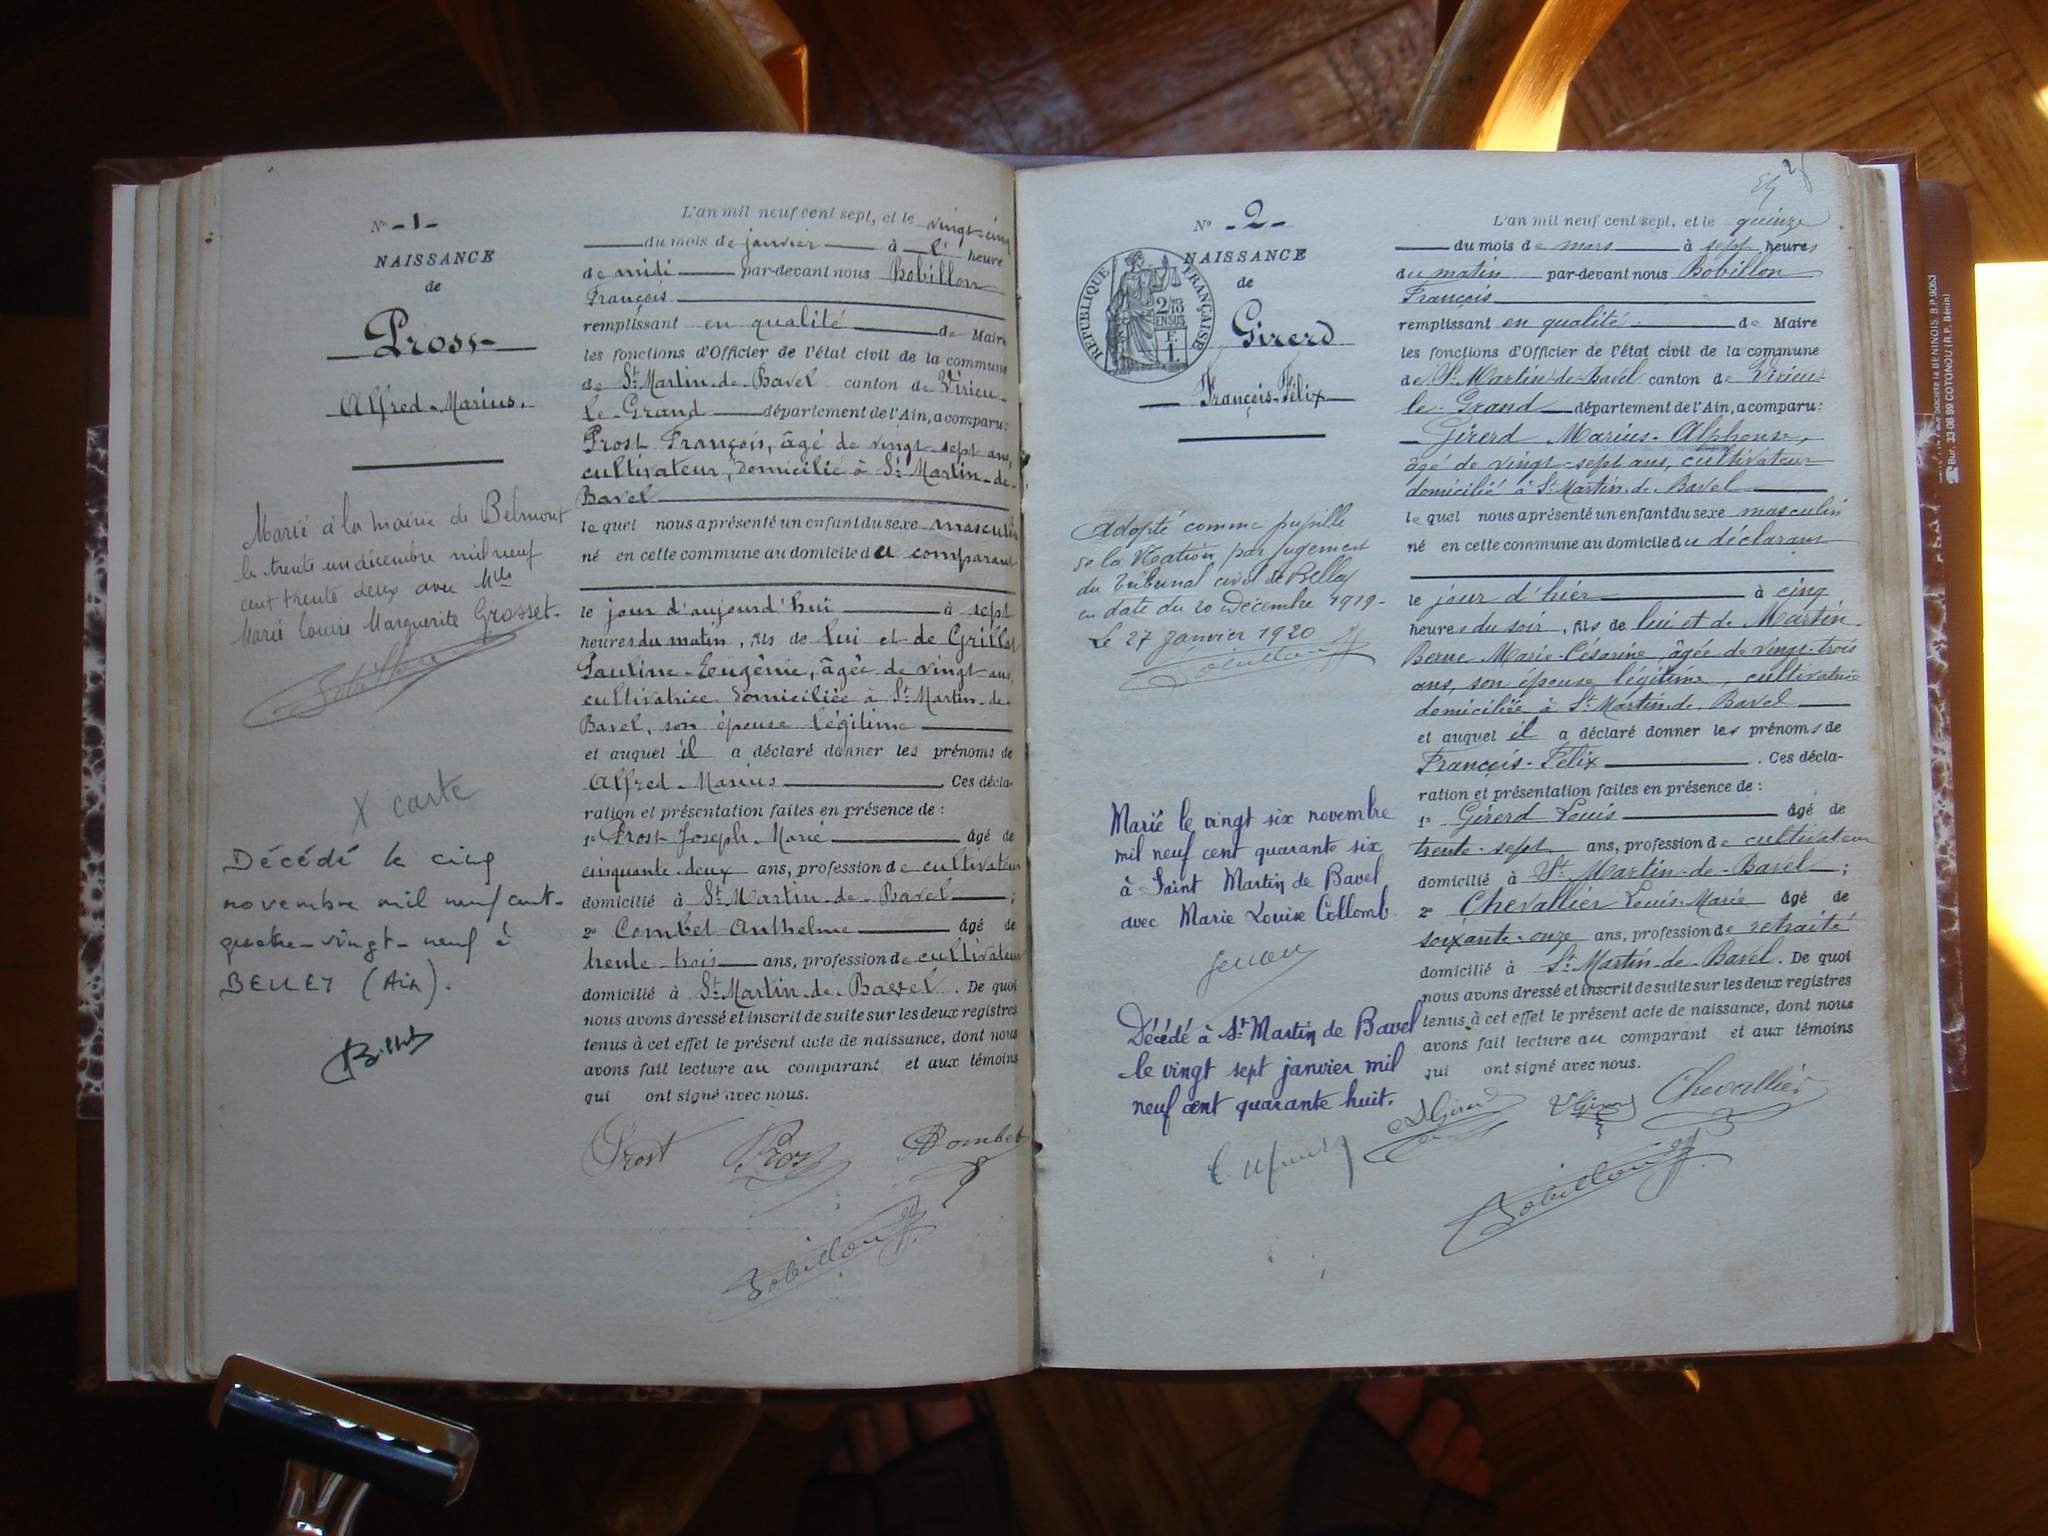 N° -1-
NAISSANCE
de
Prost
Alfred-Marius.
Marié à la mairie de Belmont
le trente un décembre mil neuf
cent trente deux avec Mlle
Marie Louise Marguerite Grosset.
X carte
Décédé le cinq
novembre mil neuf cent-
quatre-vingt-neuf à
BELLEY (Ain).
L'an mil neuf cent sept, et le vingt-cinq
du mois de janvier à heure
de midi par-devant nous Bobillon
François
remplissant en qualité de Maire
les fonctions d'Officier de l'état civil de la commune
de St Martin-de-Bavel canton de Virieu-
le-Grand département de l'Ain, a comparu:
Prost François, âgé de vingt-sept ans,
cultivateur, domicilié à St Martin-de-
Bavel
lequel nous a présenté un enfant du sexe masculin
né en cette commune au domicile du comparant
le jour d'aujourd'hui à sept
heures du matin, fils de lui et de Grillat
Pauline-Eugénie, âgée de vingt ans,
cultivatrice domiciliée à St Martin-de-
Bavel, son épouse légitime
et auquel il a déclaré donner les prénoms de
Alfred-Marius Ces décla-
ration et présentation faites en présence de :
1° Prost Joseph-Marie âgé de
cinquante-deux ans, profession de cultivateur
domicilié à St Martin-de-Bavel ;
2° Combet Anthelme âgé de
trente-trois ans, profession de cultivateur
domicilié à St Martin-de-Bavel. De quoi
nous avons dressé et inscrit de suite sur les deux registres
tenus à cet effet le présent acte de naissance, dont nous
avons fait lecture au comparant et aux témoins
qui ont signé avec nous.
Prost Prost Combet
Bobillon
2
N° -2-
NAISSANCE
de
RÉPUBLIQUE FRANÇAISE
2/10 EN SUS
Girerd
François-Félix
Adopté comme pupille
de la Nation par jugement
du Tribunal civil de Belley
en date du 20 Décembre 1919-
Le 27 Janvier 1920
Bobillon
Marié le vingt six novembre
mil neuf cent quarante six
à Saint Martin de Bavel
avec Marie Louise Collomb.
Décédé à St Martin de Bavel
le vingt sept janvier mil
neuf cent quarante huit.
L'an mil neuf cent sept, et le quinze
du mois de mars à sept heures
du matin par-devant nous Bobillon
François
remplissant en qualité de Maire
les fonctions d'Officier de l'état civil de la commune
de St Martin-de-Bavel canton de Virieu-
le-Grand département de l'Ain, a comparu:
Girerd Marius-Alphonse,
âgé de vingt-sept ans, cultivateur
domicilié à St Martin-de-Bavel
lequel nous a présenté un enfant du sexe masculin
né en cette commune au domicile du déclarant
le jour d'hier à cinq
heures du soir, fils de lui et de Martin-
Berne Marie-Césarine, âgée de vingt-trois
ans, son épouse légitime, cultivatrice
domiciliée à St Martin-de-Bavel
et auquel il a déclaré donner les prénoms de
François-Félix. Ces décla-
ration et présentation faites en présence de :
1° Girerd Louis âgé de
trente-sept ans, profession de cultivateur
domicilié à St Martin-de-Bavel ;
2° Chevallier Louis-Marie âgé de
soixante-onze ans, profession de retraité
domicilié à St Martin-de-Bavel. De quoi
nous avons dressé et inscrit de suite sur les deux registres
tenus à cet effet le présent acte de naissance, dont nous
avons fait lecture au comparant et aux témoins
qui ont signé avec nous.
Girerd Girerd Chevallier
Bobillon
BENINOIS B.P. 9063
33-08 99 COTONOU (R.P. Bénin)